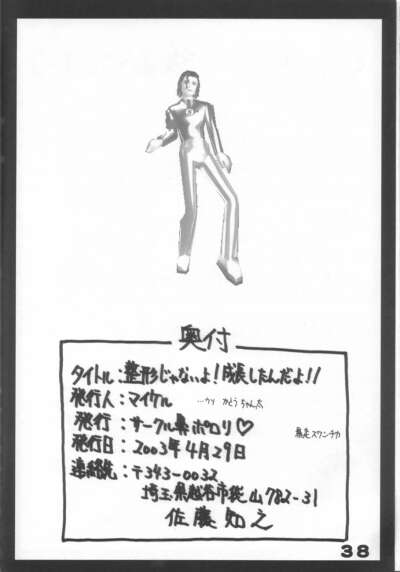 奥付
タイトル:整形じゃないよ!成長したんだよ!!
発行人:マイケル …ウソ かとうちゃん太
発行:サークル鼻ポロリ♡
暴走スワンチカ
発行日:2003年4月29日
連絡先:〒343-0032
埼玉県越谷市袋山782-31
佐藤知之
38